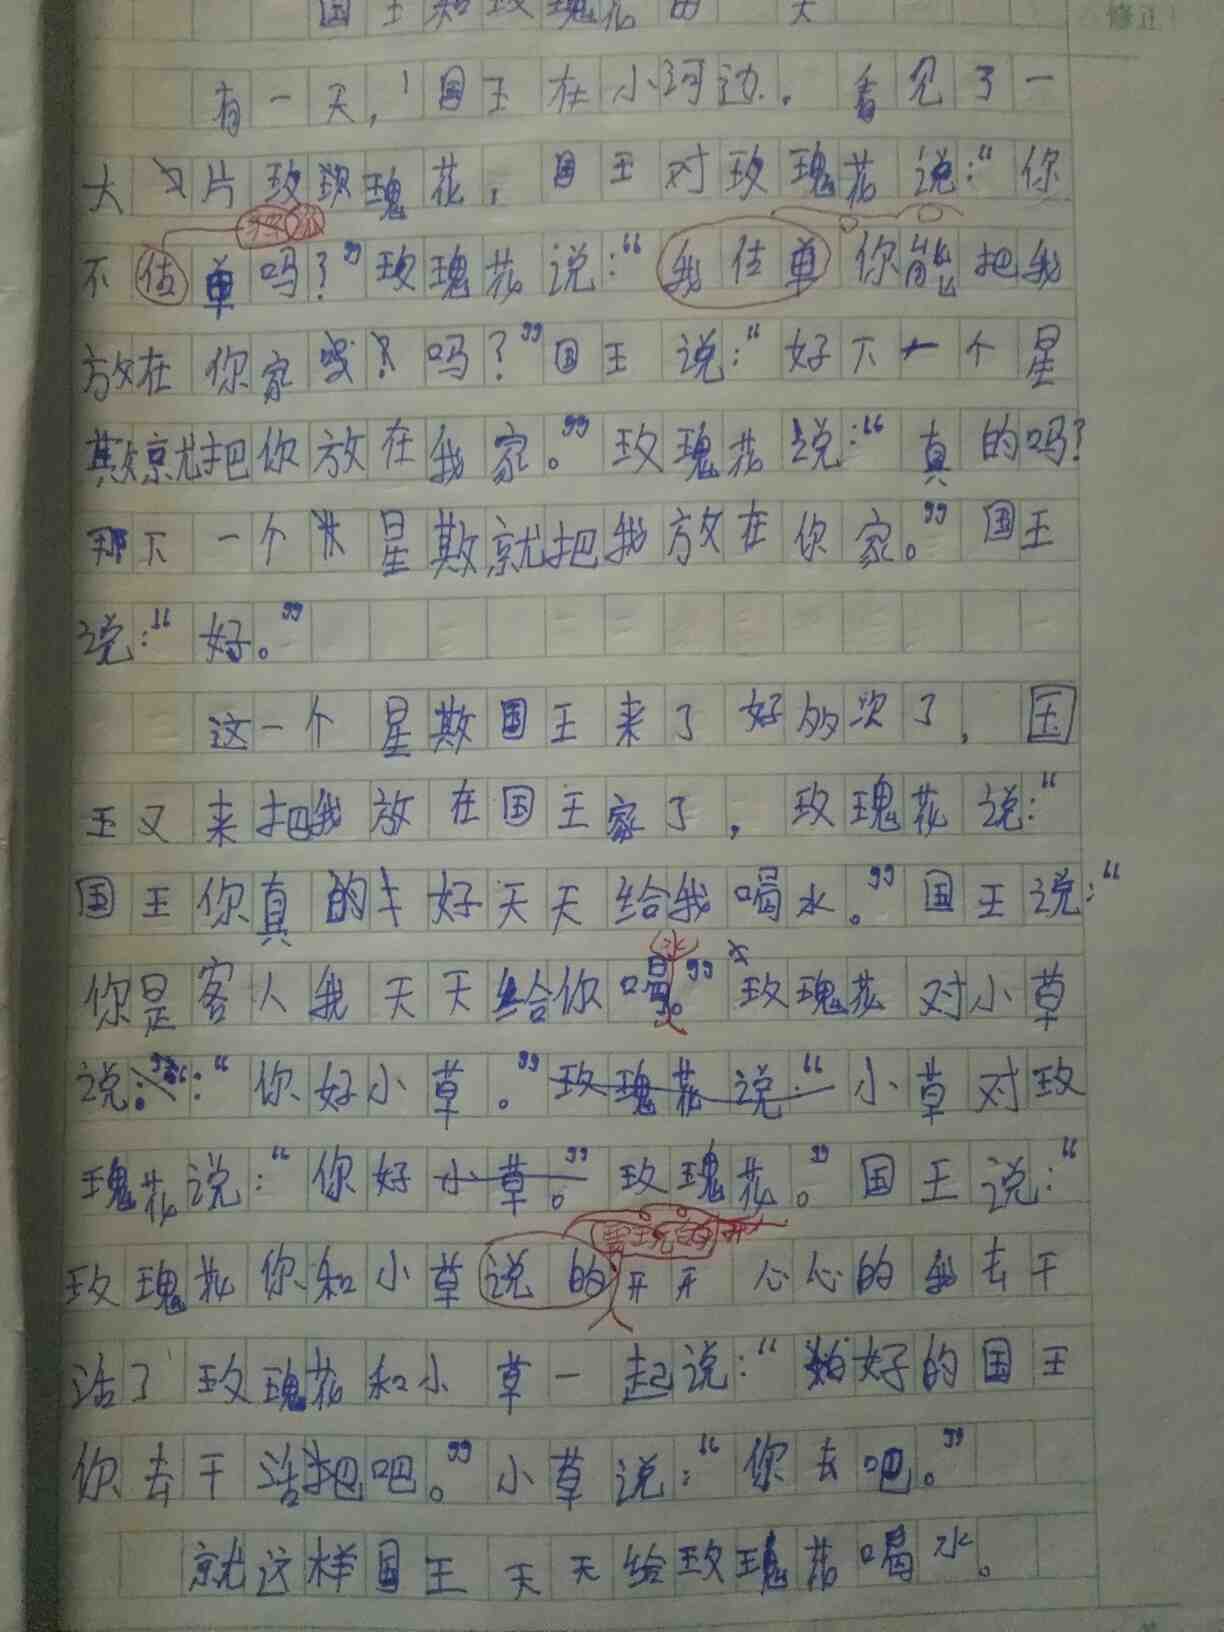 国王和玫瑰花的一天
有一天，国王在小河边，看见了一
大片玫瑰花，国王对玫瑰花说：“你
不估单吗？”玫瑰花说：“我估单你能把我
放在你家吗？”国王说：“好下一个星
期就把你放在我家。”玫瑰花说：“真的吗？
那下一个星期就把我放在你家。”国王
说：“好。”
这一个星期国王来了好多次了，国
王又来把我放在国王家了，玫瑰花说：“
国王你真的好天天给我喝水。”国王说：“
你是客人我天天给你喝。”玫瑰花对小草
说：“你好小草。”玫瑰花说：“小草对玫
瑰花说：“你好小草。”玫瑰花。”国王说：“
玫瑰花你和小草说的开开心心的我去干
活了玫瑰花和小草一起说：“好的国王
你去干活吧。”小草说：“你去吧。”
就这样国王天天给玫瑰花喝水。